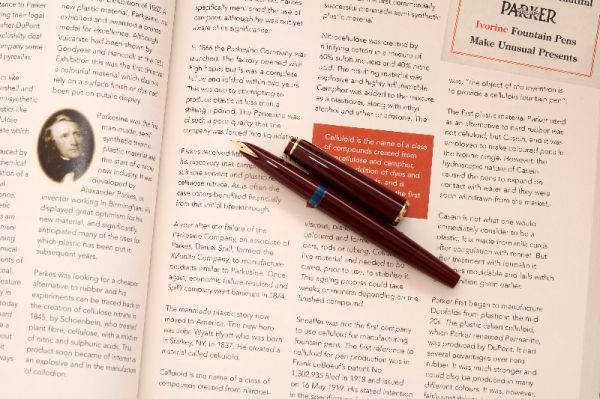 stance to Parker
their
after DuPont
xclusivity deal
company some
d pyroxylin.
cs like
semi-synthetic
astics like
which
hemical
man-made, semi-
synthetic thermo
plastic material
the start of a whole
new industry. It was
developed by
Alexander Parkes, an
inventor working in Birmingham. His
displayed great optimism for his
new material, and significantly,
anticipated many of the uses for
which plastic has been put in
subsequent years.
Parkes was looking for a cheaper
alternative to rubber and his
experiments can be traced back to
the creation of cellulose nitrate in
1845, by Schoenbein, who treated
plant fibre, cellulose, with a mixture
of nitric and sulphuric acids. The
product soon became of interest as
an explosive and in the manufacture
of collodion.
new plastic material, Parkesine, was
exhibited and awarded a bronze
medal for excellence. Although
Vulcanite had been shown by
Goodyear and Hancock at the 1851
Exhibition this was the first time that
a colourful material which did not
rely on a surface finish or dye had
been put on public display.
Parkesine was the first
specifically mentioned the use of
camphor, although he was not yet
aware of its significance.
In 1866 the Parkesine Company was
launched. The factory opened with
high hopes but it was a complete
failure and folded within two years.
This was due to attempting to
produce plastic at less than a
shilling a pound. The Parkesine was
of such a poor quality that the
company was forced into liquidation.
Parkes received little
his discovery that camphor
suitable solvent and plasticiser
cellulose nitrate. As is often the
case others benefited financially
from this initial breakthrough.
A year after the failure of the
Parkesine Company, an associate of
Parkes, Daniel Spill, formed the
Xylonite Company, to manufacture
products similar to Parkesine. Once
again, economic failure resulted and
Spill's company went bankrupt in 1874.
The manmade plastic story now
moved to America. The new hero
was John Wyatt Hyatt who was born
in Starkey, NY, in 1837. He created a
material called celluloid.
Celluloid is the name of a class of
compounds created from nitrocel-
first commercially
successful man-made semi-synthetic
plastic material.
Nitrocellulose was created by
nitrifying cotton in a mixture of
60% sulphuric acid and 40% nitric
acid. The resulting material was
explosive and highly inflammable.
Camphor was added to the mixture
as a plasticizer, along with ethyl
alcohol and ether or acetone. The
Celluloid is the name of a class
of compounds created from
nitrocellulose and camphor,
addition of dyes and
and is
the first
viscous, plastic
coloured and formed
bars, rods or tubing. Celluloid
live material and needed to be
cured, prior to use, to stabilise it.
This ageing process could take
weeks or months depending on the
finished compound.
Sheaffer was not the first company
to use celluloid for manufacturing
fountain pens. The first reference to
celluloid for pen production was in
Frank LeBoeuf's patent No
1,302,935 filed in 1918 and issued
on 16 May 1919. His stated intention
in the specification
PARKER
Ivorine Fountain Pens
Make Unusual Presents
was, "the object of the invention is
to provide a celluloid fountain pen".
The first plastic material Parker used
as an alternative to hard rubber was
not celluloid, but Casein, and it was
employed to make coloured pens in
the Ivorine range. However, the
hydroscopic nature of Casein
caused the pens to expand on
contact with water and they were
soon withdrawn from the market.
Casein is not what one would
immediately consider to be a
plastic. It is made from milk curds
after coagulation with rennet. But
after treatment with formalin it
becomes mouldable and falls within
definition given earlier.
Parker first began to manufacture
Duofolds from plastic in the mid-
20s. The plastic called celluloid,
which Parker renamed Permanite,
was produced by DuPont. It had
several advantages over hard
rubber. It was much stronger and
could also be produced in many
different colours. It was, however,